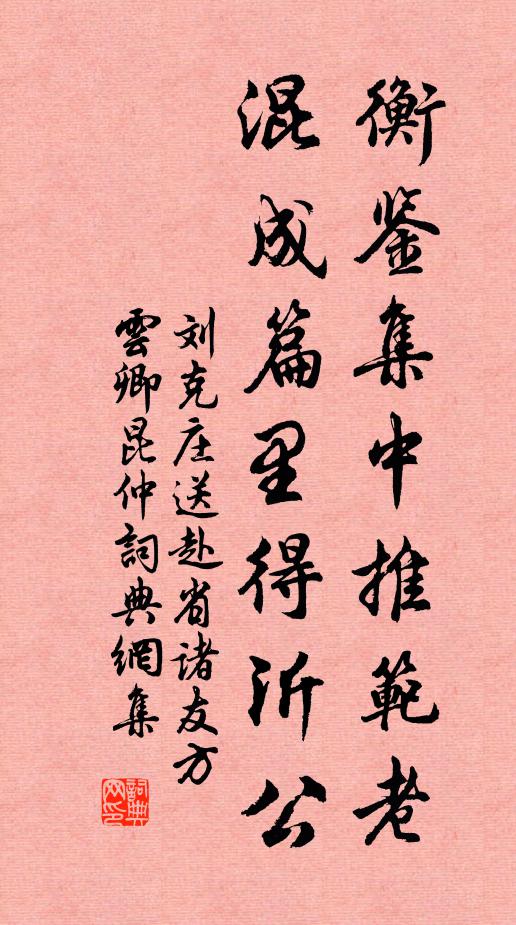 衡鉴集中推範老
混成篇里得沂公
刘克庄送赴省诸友方
雲卿昆仲詞典網集
詞典网印